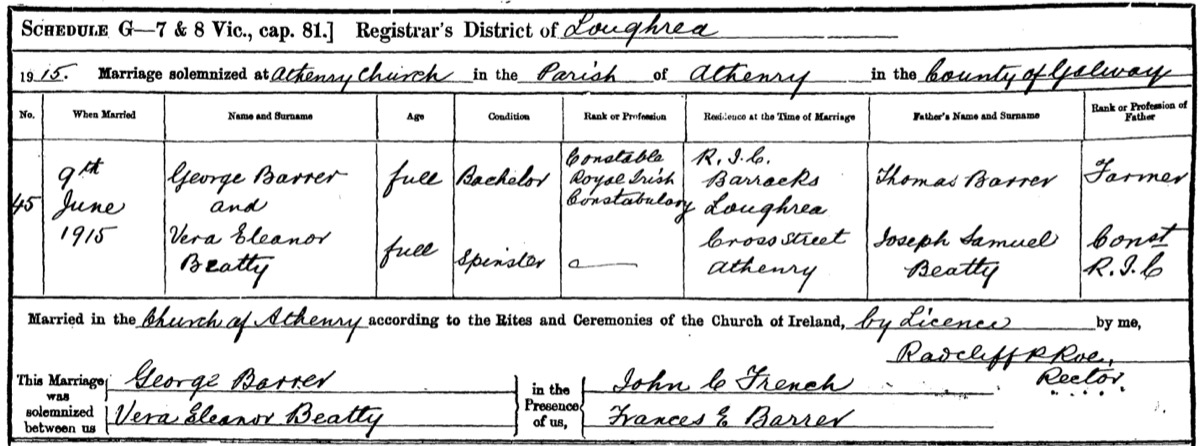 SCHEDULE G—7 & 8 Vic., cap. 81.] Registrar's District of Loughrea
1915. Marriage solemnized at Athenry Church in the Parish of Athenry in the County of Galway
No. When Married Name and Surname Age Condition Rank or Profession Residence at the Time of Marriage Father's Name and Surname Rank or Profession of Father
45 9th June 1915 George Barrer full Bachelor Constable Royal Irish Constabulary R.I.C. Barracks Loughrea Thomas Barrer Farmer
and
Vera Eleanor Beatty full Spinster — Cross Street Athenry Joseph Samuel Beatty Const R.I.C
Married in the Church of Athenry according to the Rites and Ceremonies of the Church of Ireland, by Licence by me,
Radcliff R Roe,
Rector.
This Marriage was solemnized between us George Barrer in the Presence of us, John C French
Vera Eleanor Beatty Frances E Barrer